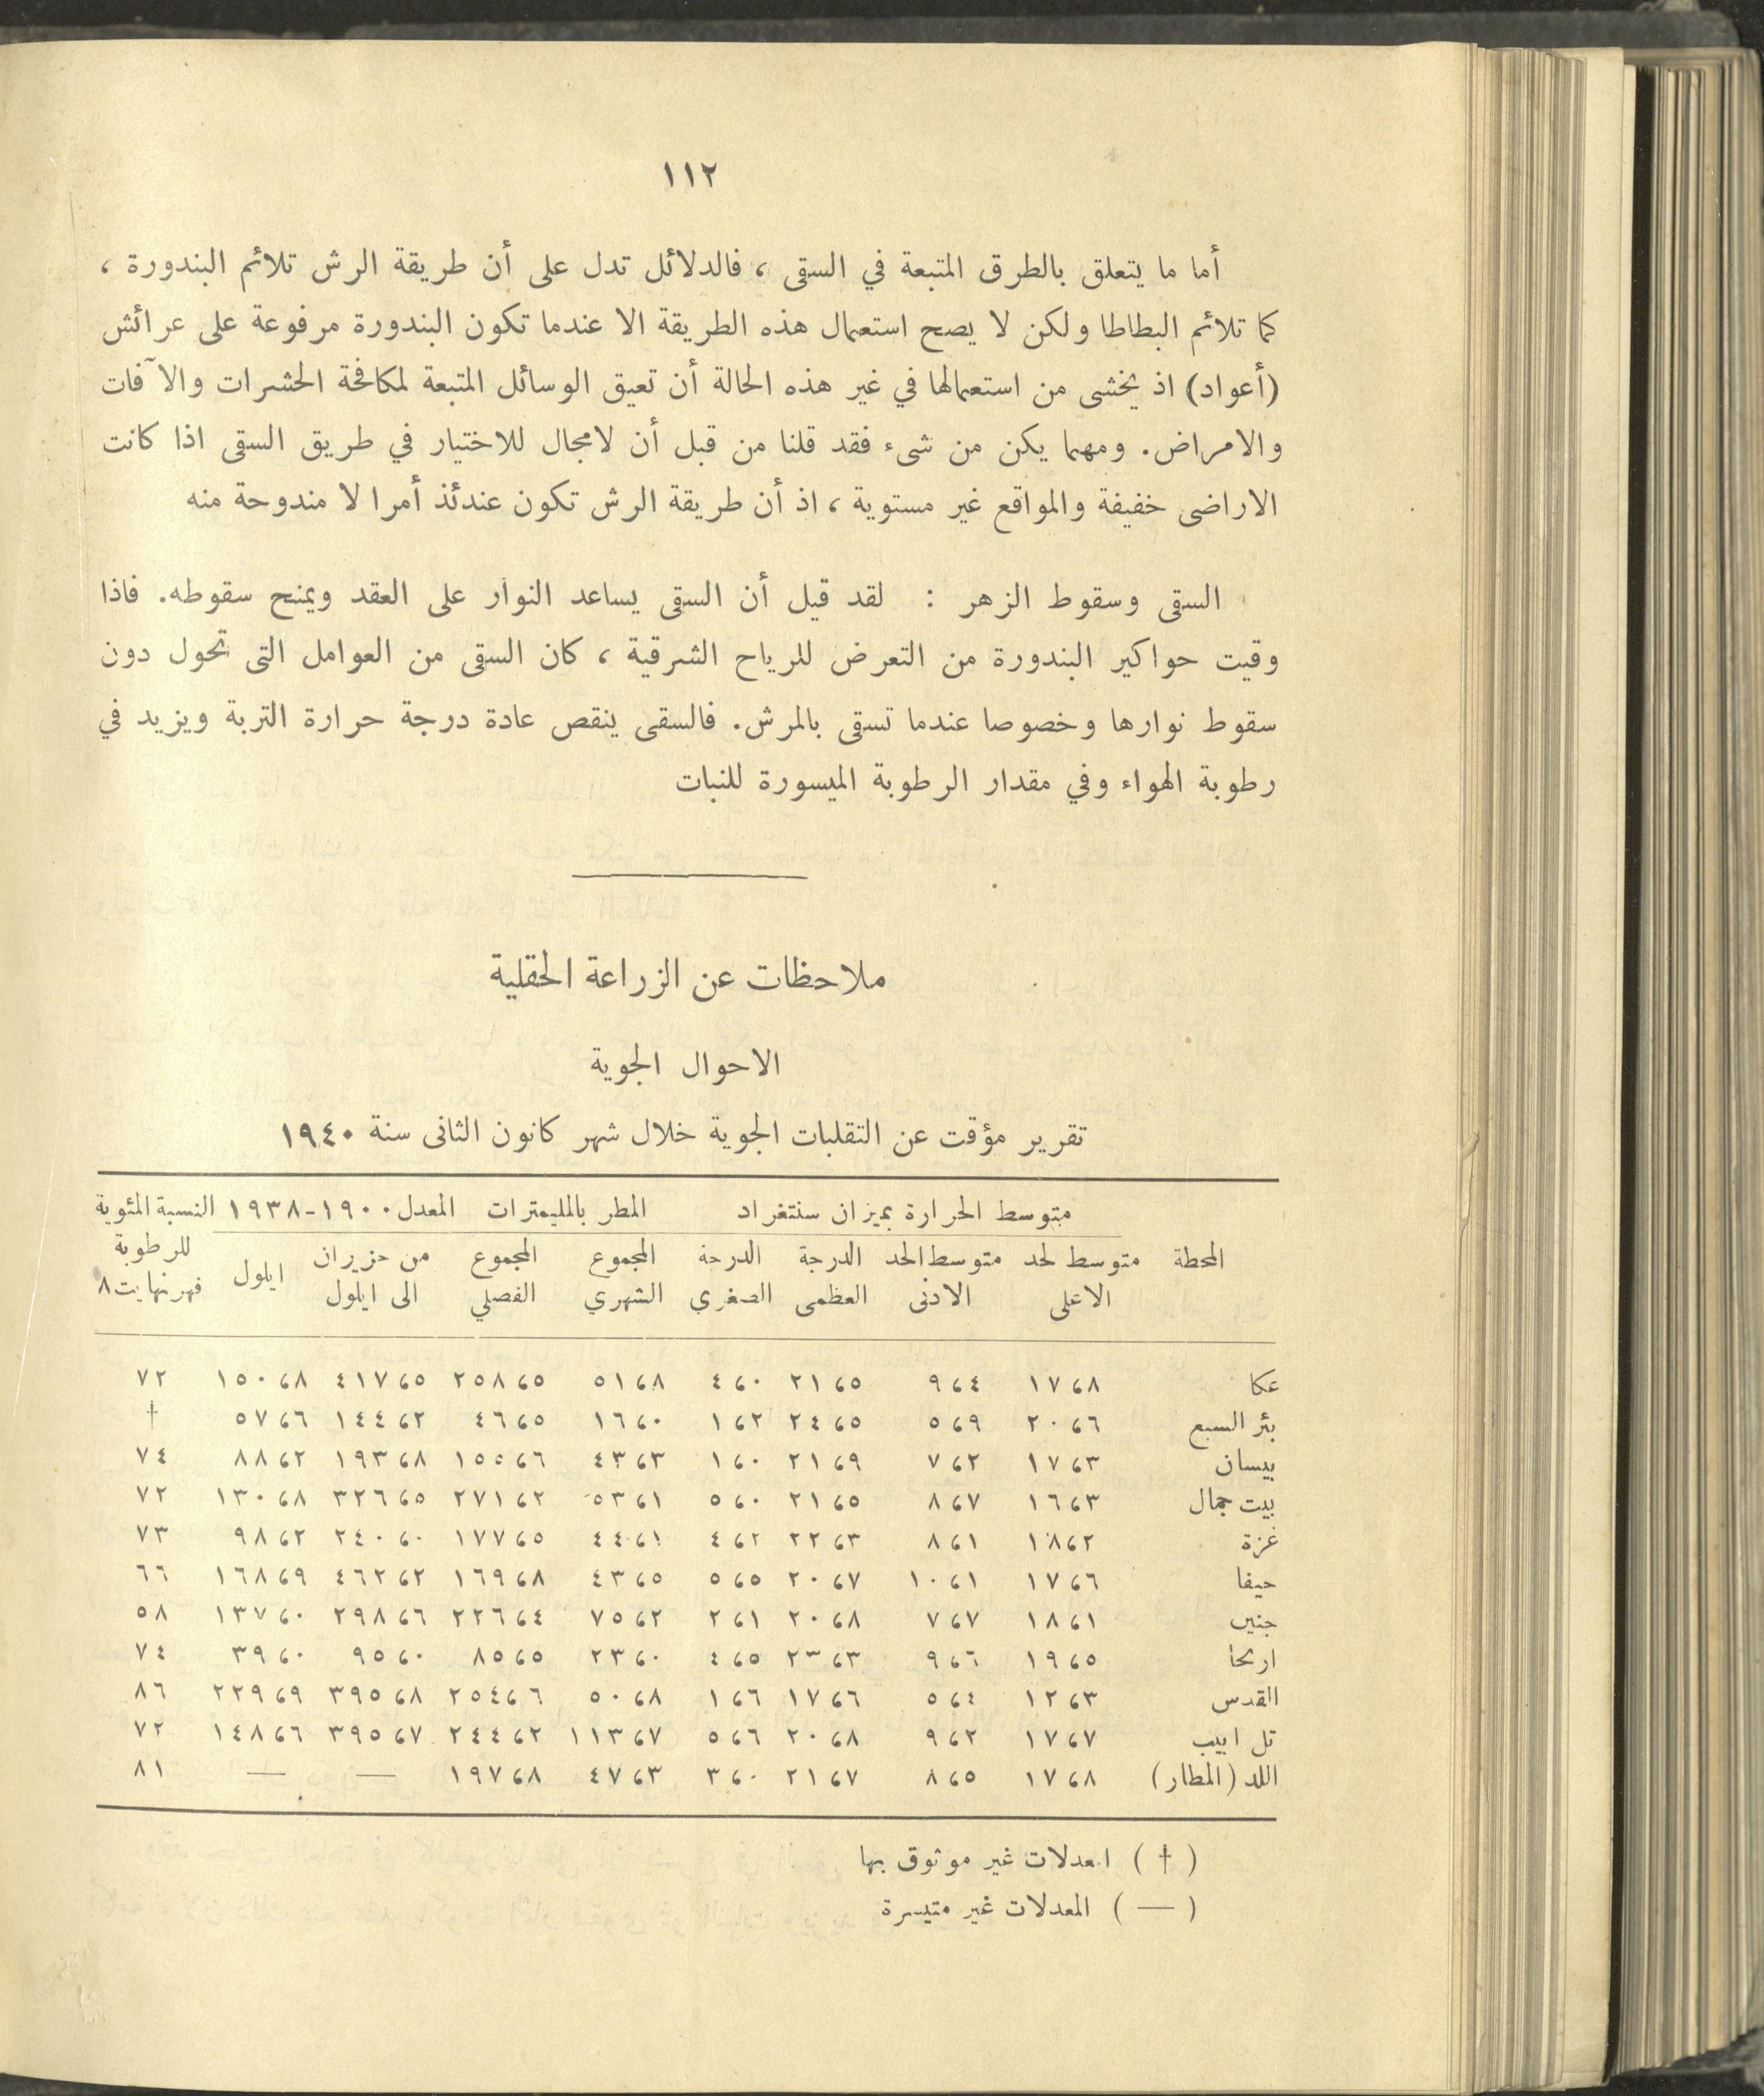 ١١٢
أما ما يتعلق بالطرق المتبعة في السقى ، فالدلائل تدل على أن طريقة الرش تلائم البندورة ،
كما تلائم البطاطا ولكن لا يصح استعمال هذه الطريقة الا عندما تكون البندورة مرفوعة على عرائش
(أعواد) اذ يخشى من استعمالها في غير هذه الحالة أن تعيق الوسائل المتبعة لمكافحة الحشرات والآفات
والامراض. ومهما يكن من شىء فقد قلنا من قبل أن لامجال للاختيار في طريق السقى اذا كانت
الاراضى خفيفة والمواقع غير مستوية ، اذ أن طريقة الرش تكون عندئذ أمرا لا مندوحة منه
السقى وسقوط الزهر : لقد قيل أن السقى يساعد النوار على العقد ويمنح سقوطه. فاذا
وقيت حواكير البندورة من التعرض للرياح الشرقية ، كان السقى من العوامل التى تحول دون
سقوط نوارها وخصوصا عندما تسقى بالمرش. فالسقى ينقص عادة درجة حرارة التربة ويزيد في
رطوبة الهواء وفي مقدار الرطوبة الميسورة للنبات
ملاحظات عن الزراعة الحقلية
الاحوال الجوية
تقرير مؤقت عن التقلبات الجوية خلال شهر كانون الثانى سنة ١٩٤٠
متوسط الحرارة بميزان سنتغراد المطر بالمليمترات المعدل ١٩٠٠-١٩٣٨ النسبة المئوية
المحطة متوسط لحد متوسط الحد الدرجة الدرجة المجموع المجموع من حزيران ايلول للرطوبة
الاعلى الادنى العظمى الصغري الشهري الفصلي الى ايلول فهرنهايت ٨
عكا ١٧،٨ ٩،٤ ٢١،٥ ٤،٠ ٥١،٨ ٢٥٨،٥ ٤١٧،٥ ١٥٠،٨ ٧٢
بئر السبع ٢٠،٦ ٥،٩ ٢٤،٥ ١،٢ ١٦،٠ ٤٦،٥ ١٤٤،٢ ٥٧،٦ †
بيسان ١٧،٣ ٧،٢ ٢١،٩ ١،٠ ٤٣،٣ ١٥٥،٦ ١٩٣،٨ ٨٨،٢ ٧٤
بيت جمال ١٦،٣ ٨،٧ ٢١،٥ ٥،٠ ٥٣،١ ٢٧١،٢ ٣٢٦،٥ ١٣٠،٨ ٧٢
غزة ١٨،٢ ٨،١ ٢٢،٣ ٤،٢ ٤٤،١ ١٧٧،٥ ٢٤٠،٠ ٩٨،٢ ٧٣
حيفا ١٧،٦ ١٠،١ ٢٠،٧ ٥،٥ ٤٣،٥ ١٦٩،٨ ٤٦٢،٢ ١٦٨،٩ ٦٦
جنين ١٨،١ ٧،٧ ٢٠،٨ ٢،١ ٧٥،٢ ٢٢٦،٤ ٢٩٨،٦ ١٣٧،٠ ٥٨
اريحا ١٩،٥ ٩،٦ ٢٣،٣ ٤،٥ ٢٣،٠ ٨٥،٥ ٩٥،٠ ٣٩،٠ ٧٤
القدس ١٢،٣ ٥،٤ ١٧،٦ ١،٦ ٥٠،٨ ٢٥٤،٦ ٣٩٥،٨ ٢٢٩،٩ ٨٦
تل ابيب ١٧،٧ ٩،٢ ٢٠،٨ ٥،٦ ١١٣،٧ ٢٤٤،٢ ٣٩٥،٧ ١٤٨،٦ ٧٢
اللد (المطار) ١٧،٨ ٨،٥ ٢١،٧ ٣،٠ ٤٧،٣ ١٩٧،٨ — — ٨١
( † ) المعدلات غير موثوق بها
( — ) المعدلات غير متيسرة